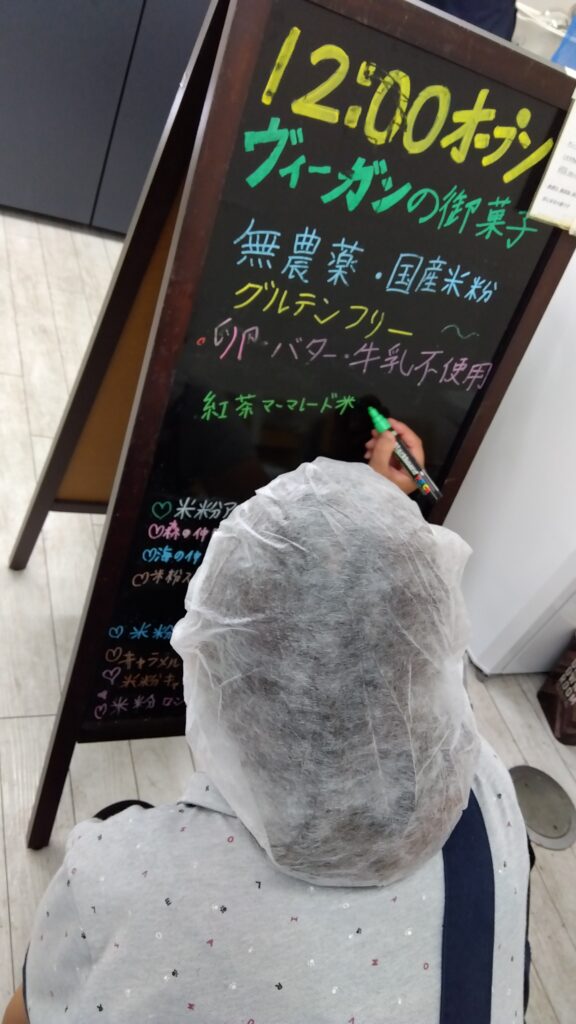 12:00オープン
ヴィーガンの御菓子
無農薬・国産米粉
グルテンフリー
卵・バター・牛乳不使用
紅茶マーマレード米
♡米粉
♡森の仲
♡海の仲
♡米粉ス
♡米粉
♡キャラメル
♡米粉キャ
♡米粉ロン